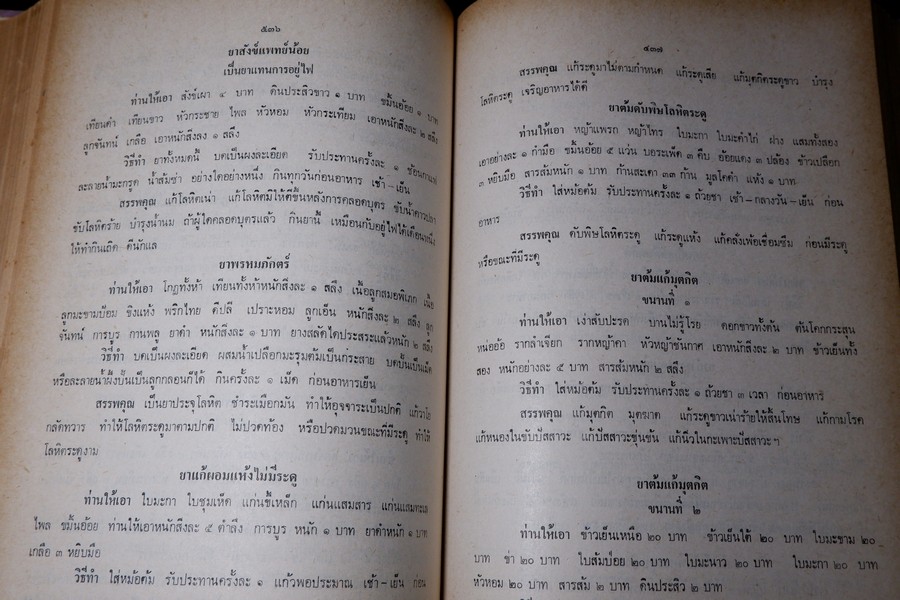 ๕๓๖
ยาสังข์แพทย์น้อย
เป็นยาแทนการอยู่ไฟ
ท่านให้เอา สังข์เผา ๔ บาท ดินประสิวขาว ๑ บาท ขมิ้นอ้อย ๑ บาท
เทียนดำ เทียนขาว หัวกระชาย ไพล หัวหอม หัวกระเทียม เอาหนักสิ่งละ ๒ สลึง
ลูกจันทน์ เกลือ เอาหนักสิ่งละ ๑ สลึง
วิธีทำ ยาทั้งหมดนี้ บดเป็นผงละเอียด รับประทานครั้งละ ๑ ช้อนกาแฟ
ละลายน้ำมะกรูด น้ำส้มซ่า อย่างใดอย่างหนึ่ง กินทุกวันก่อนอาหาร เช้า–เย็น
สรรพคุณ แก้โลหิตเน่า แก้โลหิตมิให้ตีขึ้นหลังการคลอดบุตร ขับน้ำคาวปลา
ขับโลหิตร้าย บำรุงน้ำนม ถ้าผู้ใดคลอดบุตรแล้ว กินยานี้ เหมือนกับอยู่ไฟได้เดือนหนึ่ง
ให้ทำกินเถิด ดีนักแล
ยาพรหมภักตร์
ท่านให้เอา โกฏทั้งห้า เทียนทั้งห้าหนักสิ่งละ ๑ สลึง เนื้อลูกสมอพิเภก เนื้อ
ลูกมะขามป้อม ขิงแห้ง พริกไทย ดีปลี เปราะหอม ลูกเอ็น หนักสิ่งละ ๒ สลึง ลูก
จันทน์ การบูร กานพลู ยาดำ หนักสิ่งละ ๑ บาท ยางสลัดไดประสระแล้วหนัก ๒ สลึง
วิธีทำ บดเป็นผงละเอียด ผสมน้ำเปลือกมะรุมต้มเป็นกระสาย บดปั้นเป็นเม็ด
หรือละลายน้ำผึ้งปั้นเป็นลูกกลอนก็ได้ กินครั้งละ ๑ เม็ด ก่อนอาหารเย็น
สรรพคุณ เป็นยาประจุโลหิต ชำระเมือกมัน ทำให้อุจจาระเป็นปกติ แก้วาโย
กลัดทวาร ทำให้โลหิตระดูมาตามปกติ ไม่ปวดท้อง หรือปวดมวนขณะที่มีระดู ทำให้
โลหิตระดูงาม
ยาแก้ผอมแห้งไม่มีระดู
ท่านให้เอา ใบมะกา ใบชุมเห็ด แก่นขี้เหล็ก แก่นแสมสาร แก่นแสมทะเล
ไพล ขมิ้นอ้อย ท่านให้เอาหนักสิ่งละ ๕ ตำลึง การบูร หนัก ๑ บาท ยาดำหนัก ๑ บาท
เกลือ ๓ หยิบมือ
วิธีทำ ใส่หม้อต้ม รับประทานครั้งละ ๑ แก้วพอประมาณ เช้า–เย็น ก่อน
๔๓๗
สรรพคุณ แก้ระดูมาไม่ตามกำหนด แก้ระดูเสีย แก้มุตกิดระดูขาว บำรุง
โลหิตระดู เจริญอาหารได้ดี
ยาต้มดับพิษโลหิตระดู
ท่านให้เอา หญ้าแพรก หญ้าไทร ใบมะกา ใบมะคำไก่ ฝาง แสมทั้งสอง
เอาอย่างละ ๑ กำมือ ขมิ้นอ้อย ๕ แว่น บอระเพ็ด ๓ คืบ อ้อยแดง ๓ ปล้อง ข้าวเปลือก
๓ หยิบมือ สารส้มหนัก ๑ บาท ก้านสะเดา ๓๓ ก้าน มูลโคดำ แห้ง ๑ บาท
วิธีทำ ใส่หม้อต้ม รับประทานครั้งละ ๑ ถ้วยชา เช้า–กลางวัน–เย็น ก่อน
อาหาร
สรรพคุณ ดับพิษโลหิตระดู แก้ระดูแห้ง แก้คลั่งเพ้อเชื่อมซึม ก่อนมีระดู
หรือขณะที่มีระดู
ยาต้มแก้มุตกิต
ขนานที่ ๑
ท่านให้เอา เง่าสับปะรด บานไม่รู้โรย ดอกขาวทั้งต้น ต้นโคกกระสุน
หน่ออ้อ รากลำเจียก รากหญ้าคา หัวหญ้าชันกาศ เอาหนักสิ่งละ ๒ บาท ข้าวเย็นทั้ง
สอง หนักอย่างละ ๕ บาท สารส้มหนัก ๒ สลึง
วิธีทำ ใส่หม้อต้ม รับประทานครั้งละ ๑ ถ้วยชา ๓ เวลา ก่อนอาหาร
สรรพคุณ แก้มุตกิต มุตฆาต แก้ระดูขาวเน่าร้ายให้สิ้นโทษ แก้กามโรค
แก้หนองในขับปัสสาวะ แก้ปัสสาวะขุ่นข้น แก้นิ่วในกะเพาะปัสสาวะฯ
ยาต้มแก้มุตกิต
ขนานที่ ๒
ท่านให้เอา ข้าวเย็นเหนือ ๒๐ บาท ข้าวเย็นใต้ ๒๐ บาท ใบมะขาม ๒๐
บาท ข่า ๒๐ บาท ใบส้มป่อย ๒๐ บาท ใบมะนาว ๒๐ บาท ใบมะกา ๒๐ บาท
หัวหอม ๒๐ บาท สารส้ม ๒ บาท ดินประสิว ๒ บาท